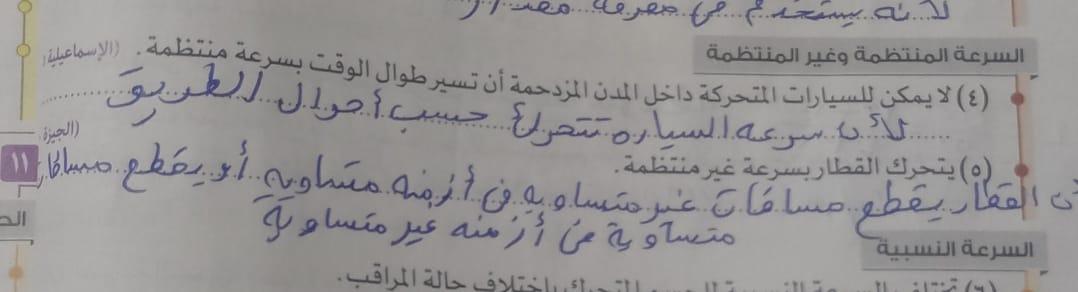 لأنه يستخدم في معرفة
السرعة المنتظمة وغير المنتظمة
(٤) لا يمكن للسيارات المتحركة داخل المدن المزدحمة أن تسير طوال الوقت بسرعة منتظمة. (الإسماعيلية)
لأن سرعه السياره تتحرك حسب أحوال الطريق
(٥) يتحرك القطار بسرعة غير منتظمة. (الجيزة)
١١
القطار يقطع مسافات غير متساويه في أزمنه متساويه أو يقطع مسافات
متساوية في أزمنه غير متساوية
السرعة النسبية
باختلاف حالة المراقب.